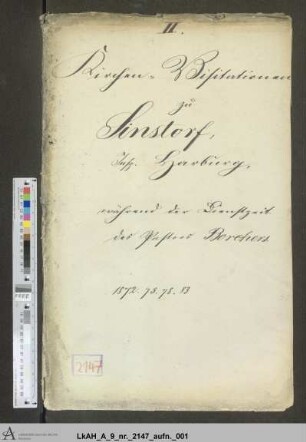 II.
Kirchen-Visitationen
zu
Sinstorf,
Insp. Harburg,
während der Dienstzeit
des Pastors Borchers
1872. 73. 78. 83
2147
LkAH_A_9_nr._2147_aufn._001